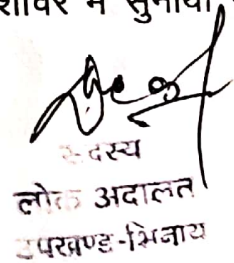 शिविर में सुनाया
सदस्य
लोक अदालत
उपखण्ड-भिनाय